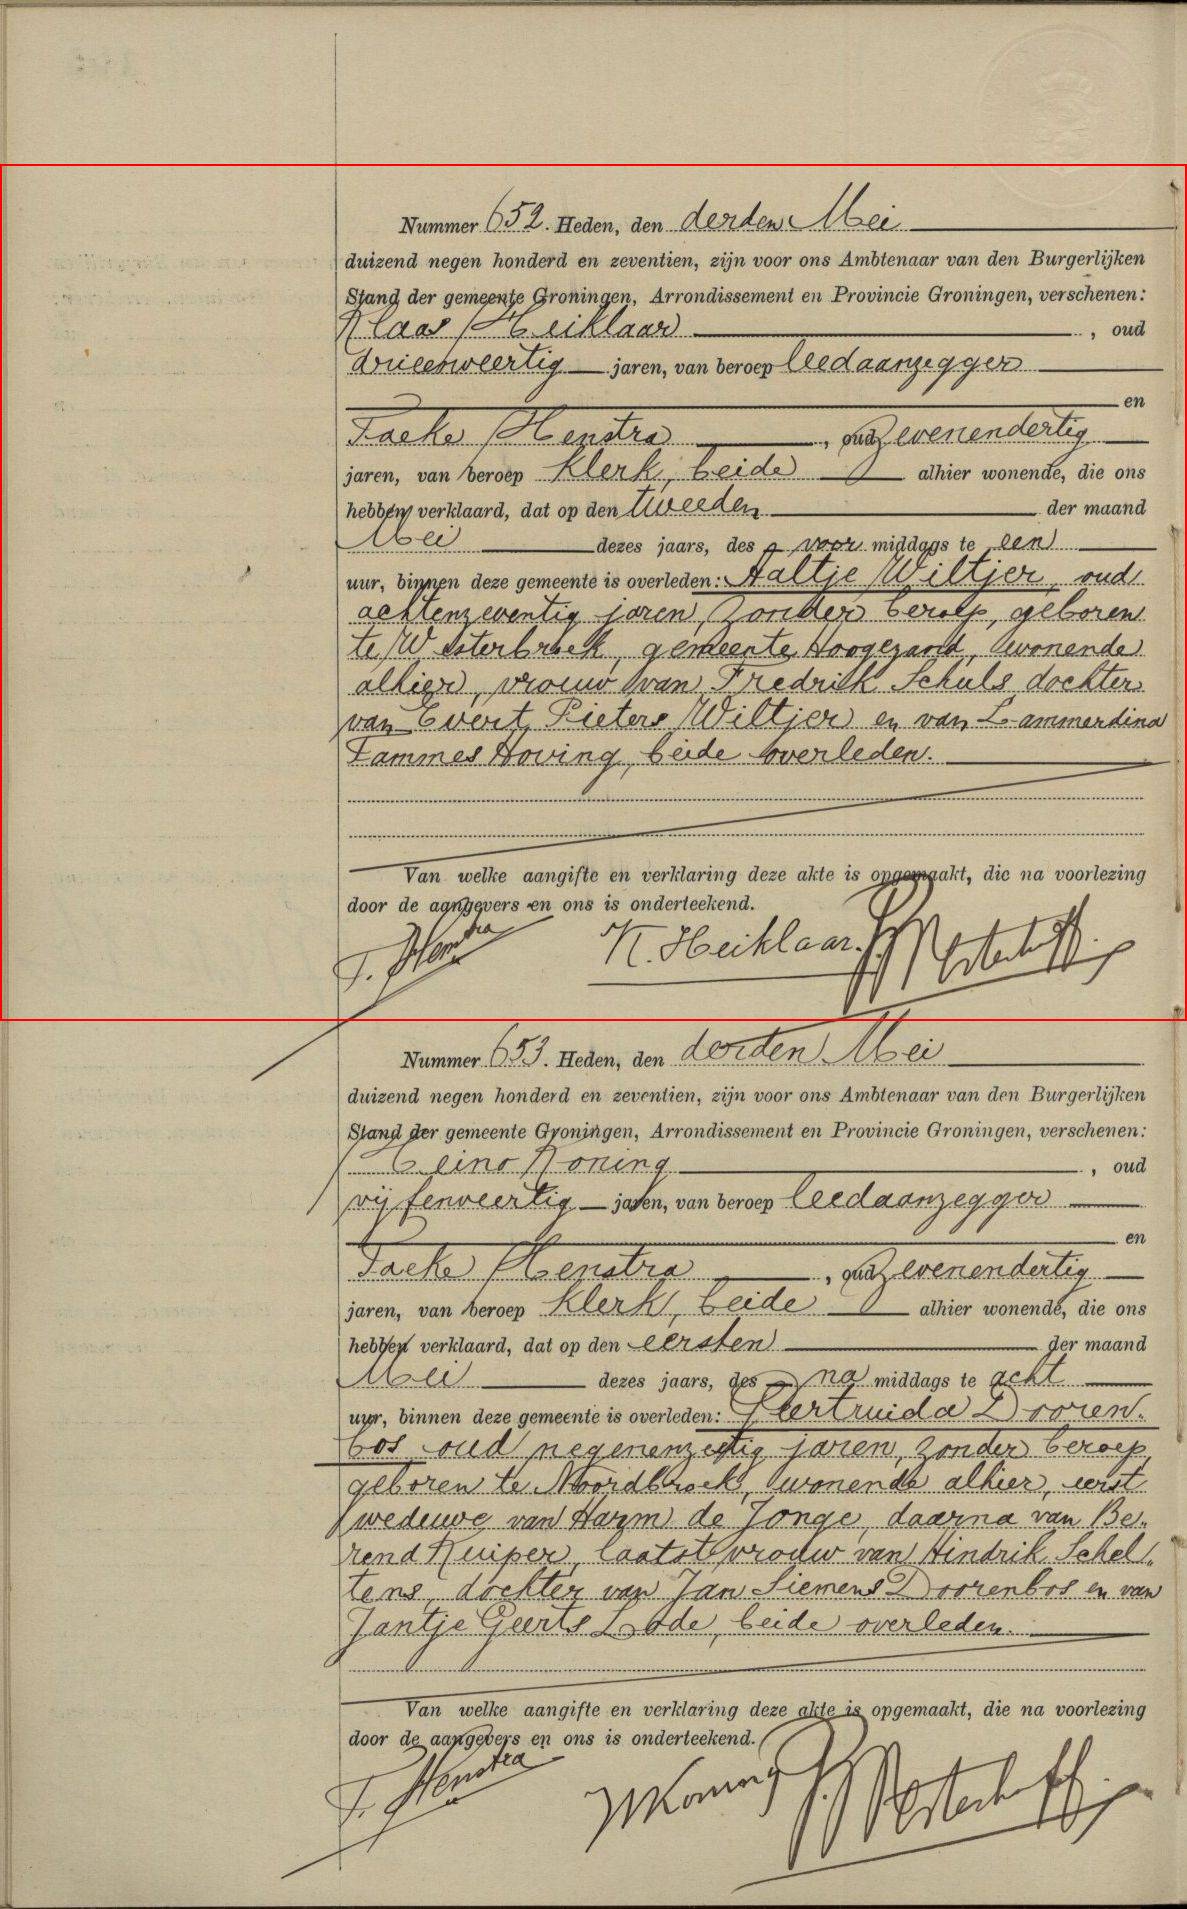 Nummer 652. Heden, den derden Mei
duizend negen honderd en zeventien, zijn voor ons Ambtenaar van den Burgerlijken
Stand der gemeente Groningen, Arrondissement en Provincie Groningen, verschenen:
Klaas Heiklaar, oud
drieenveertig jaren, van beroep leedaanzegger
en
Taeke Henstra, oud zevenendertig
jaren, van beroep klerk, beide alhier wonende, die ons
hebben verklaard, dat op den tweeden der maand
Mei dezes jaars, des voor middags te een
uur, binnen deze gemeente is overleden: Aaltje Wiltjer, oud
achtenzeventig jaren, zonder beroep, geboren
te Westerbroek, gemeente Hoogezand, wonende
alhier, vrouw van Fredrik Schuls dochter
van Evert Pieters Wiltjer en van Lammerdina
Tammes Hoving, beide overleden.
Van welke aangifte en verklaring deze akte is opgemaakt, die na voorlezing
door de aangevers en ons is onderteekend.
T. Henstra K. Heiklaar.
Nummer 653. Heden, den derden Mei
duizend negen honderd en zeventien, zijn voor ons Ambtenaar van den Burgerlijken
Stand der gemeente Groningen, Arrondissement en Provincie Groningen, verschenen:
Heino Koning, oud
vijfenveertig jaren, van beroep leedaanzegger
en
Taeke Henstra, oud zevenendertig
jaren, van beroep klerk, beide alhier wonende, die ons
hebben verklaard, dat op den eersten der maand
Mei dezes jaars, des na middags te acht
uur, binnen deze gemeente is overleden: Geertruida Dooren-
bos oud negenenzestig jaren, zonder beroep,
geboren te Noordbroek, wonende alhier, eerst
weduwe van Harm de Jonge, daarna van Be-
rend Kuiper, laatst vrouw van Hindrik Schel-
tens, dochter van Jan Siemens Doorenbos en van
Jantje Geerts Lode, beide overleden.
Van welke aangifte en verklaring deze akte is opgemaakt, die na voorlezing
door de aangevers en ons is onderteekend.
T. Henstra HKoning